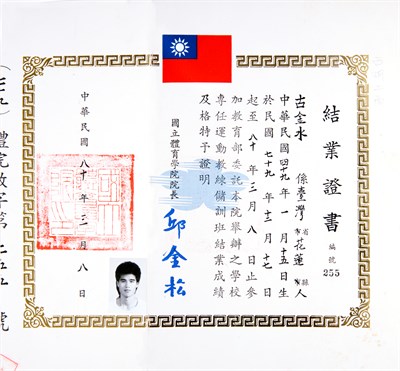 結業證書
編號 255
古金水 係臺灣省市花蓮縣市人
中華民國肆拾玖年一月十五日生
於民國七十九年十二月十七日
起至八十年三月八日止參
加教育部委託本院舉辦之學校
專任運動教練儲訓班結業成績
及格特予證明
國立體育學院院長
邱金松
中華民國八十年三月八日